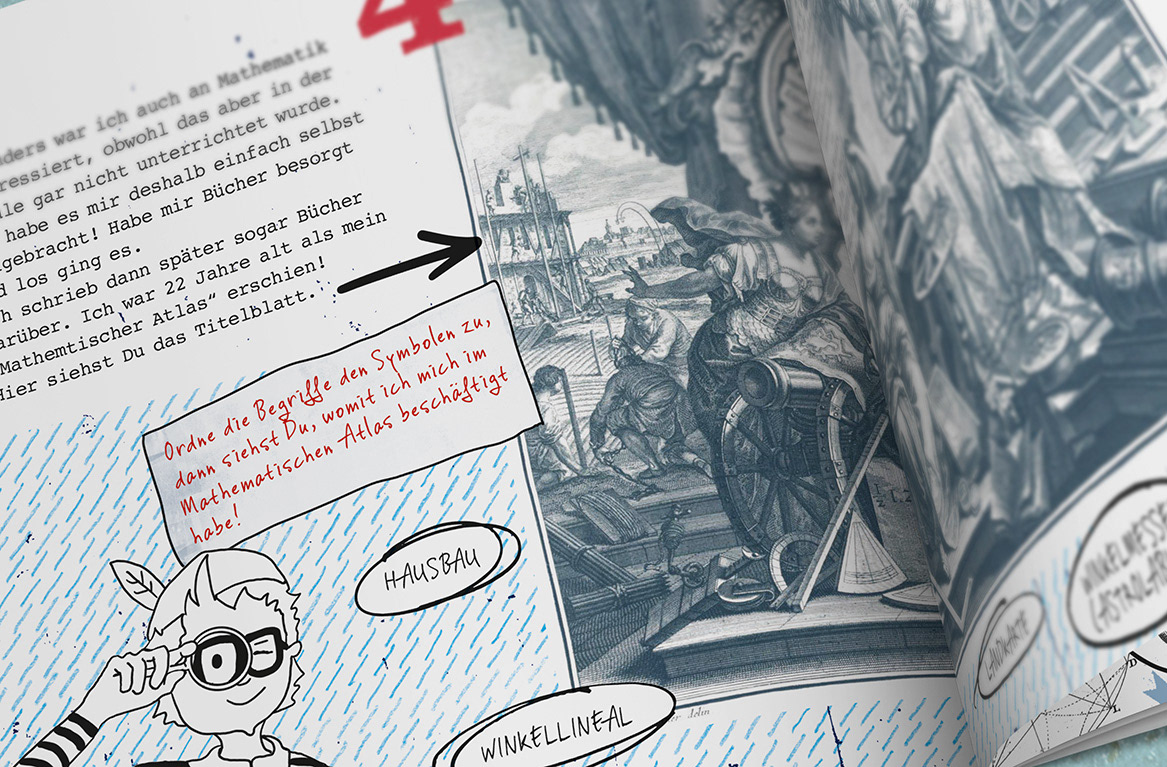 4
nders war ich auch an Mathematik
ressiert, obwohl das aber in der
le gar nicht unterrichtet wurde.
habe es mir deshalb einfach selbst
gebracht! Habe mir Bücher besorgt
d los ging es.
h schrieb dann später sogar Bücher
arüber. Ich war 22 Jahre alt als mein
Mathemtischer Atlas“ erschien!
Hier siehst Du das Titelblatt.
Ordne die Begriffe den Symbolen zu,
dann siehst Du, womit ich mich im
Mathematischen Atlas beschäftigt
habe!
HAUSBAU
WINKELLINEAL
LANDKARTE
WINKELMESSE